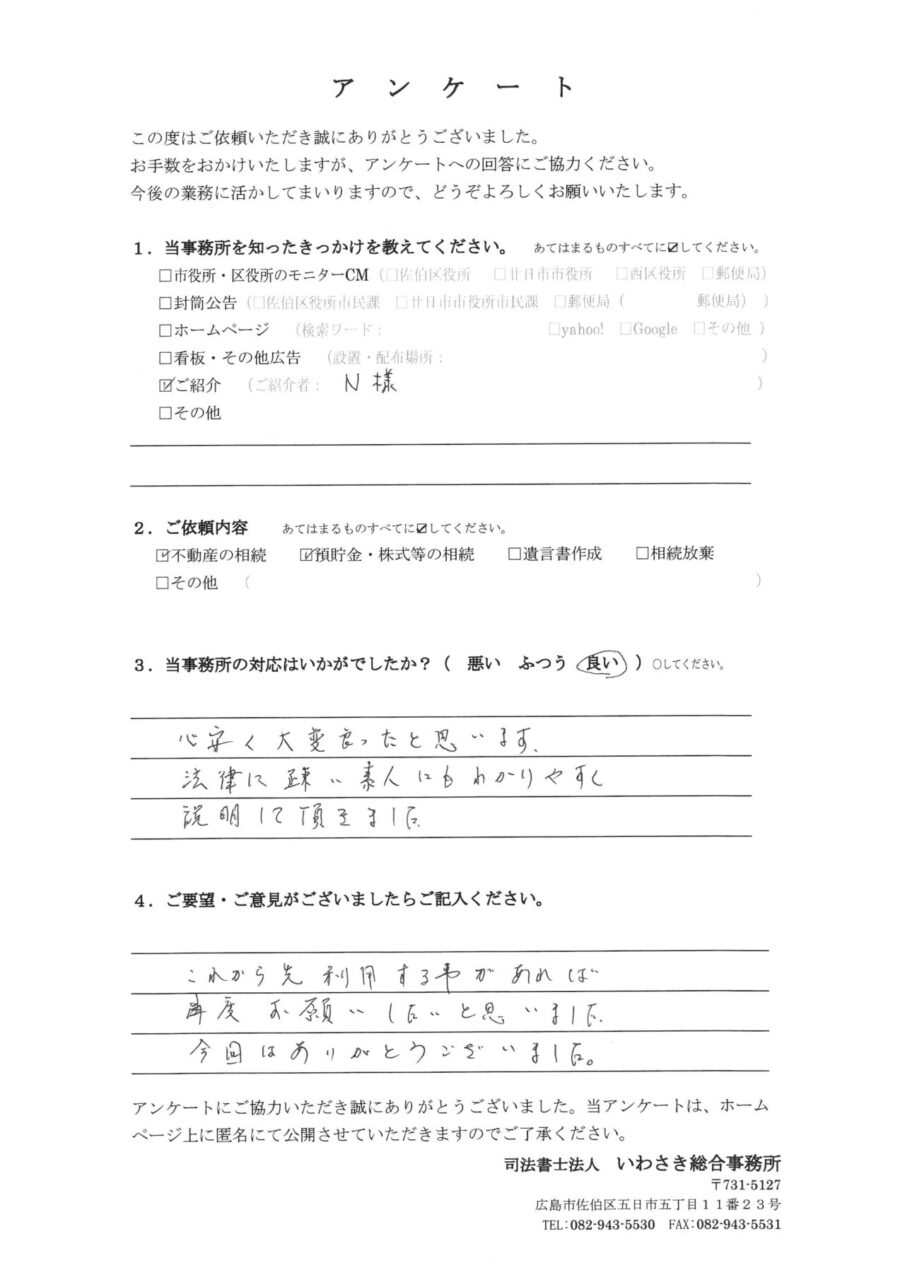 アンケート
この度はご依頼いただき誠にありがとうございました。
お手数をおかけいたしますが、アンケートへの回答にご協力ください。
今後の業務に活かしてまいりますので、どうぞよろしくお願いいたします。
1．当事務所を知ったきっかけを教えてください。 あてはまるものすべてに☑してください。
□市役所・区役所のモニターCM（□佐伯区役所 □廿日市市役所 □西区役所 □郵便局）
□封筒広告（□佐伯区役所市民課 □廿日市市役所市民課 □郵便局（ 郵便局））
□ホームページ （検索ワード： □yahoo! □Google □その他）
□看板・その他広告 （設置・配布場所： ）
☑ご紹介 （ご紹介者： N様 ）
□その他
2．ご依頼内容 あてはまるものすべてに☑してください。
☑不動産の相続 ☑預貯金・株式等の相続 □遺言書作成 □相続放棄
□その他 （ ）
3．当事務所の対応はいかがでしたか？（ 悪い ふつう 良い ）○してください。
心安く大変良ったと思います。
法律に疎い素人にもわかりやすく
説明して頂きました
4．ご要望・ご意見がございましたらご記入ください。
これから先利用する事があれば
再度お願いしたいと思いました
今回はありがとうございました。
アンケートにご協力いただき誠にありがとうございました。当アンケートは、ホーム
ページ上に匿名にて公開させていただきますのでご了承ください。
司法書士法人 いわさき総合事務所
〒731-5127
広島市佐伯区五日市五丁目１１番２３号
TEL:082-943-5530 FAX:082-943-5531